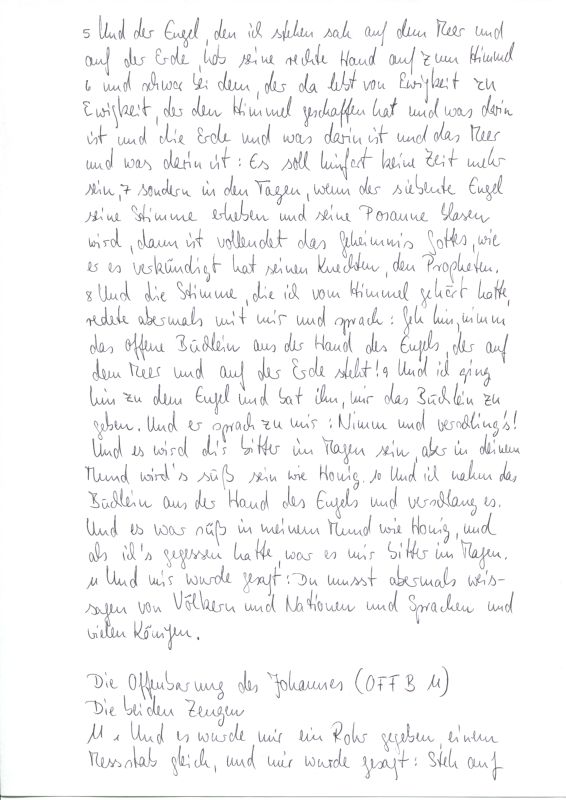 5 Und der Engel, den ich stehen sah auf dem Meer und
auf der Erde, hob seine rechte Hand auf zum Himmel
6 und schwor bei dem, der da lebt von Ewigkeit zu
Ewigkeit, der den Himmel geschaffen hat und was darin
ist und die Erde und was darin ist und das Meer
und was darin ist: Es soll hinfort keine Zeit mehr
sein, 7 sondern in den Tagen, wenn der siebente Engel
seine Stimme erheben und seine Posaune blasen
wird, dann ist vollendet das Geheimnis Gottes, wie
er es verkündigt hat seinen Knechten, den Propheten.
8 Und die Stimme, die ich vom Himmel gehört hatte,
redete abermals mit mir und sprach: Geh hin, nimm
das offene Büchlein aus der Hand des Engels, der auf
dem Meer und auf der Erde steht! 9 Und ich ging
hin zu dem Engel und bat ihn, mir das Büchlein zu
geben. Und er sprach zu mir: Nimm und verschling's!
Und es wird dir bitter im Magen sein, aber in deinem
Mund wird's süß sein wie Honig. 10 Und ich nahm das
Büchlein aus der Hand des Engels und verschlang es.
Und es war süß in meinem Mund wie Honig, und
als ich's gegessen hatte, war es mir bitter im Magen.
11 Und mir wurde gesagt: Du musst abermals weis-
sagen von Völkern und Nationen und Sprachen und
vielen Königen.
Die Offenbarung des Johannes (OFFB 11)
Die beiden Zeugen
11 1 Und es wurde mir ein Rohr gegeben, einem
Messstab gleich, und mir wurde gesagt: Steh auf